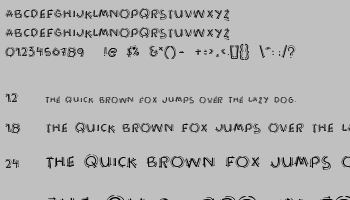 ABCDEFGHIJKLMNOPQRSTUVWXYZ
ABCDEFGHIJKLMNOPQRSTUVWXYZ
0123456789 !@ $% &*() - +:>,<.[]{} \":;/?
12 THE QUICK BROWN FOX JUMPS OVER THE LAZY DOG.
18 THE QUICK BROWN FOX JUMPS OVER THE L
24 THE QUICK BROWN FOX JUMPS